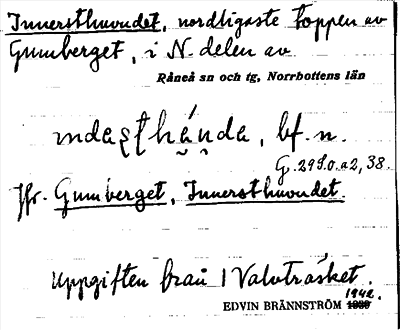 Innersthuvudet, nordligaste toppen av
Gumberget, i N. delen av
Råneå sn och tg, Norrbottens län
bf. n.
G. 29 S. o. a 2, 38.
Jfr. Gumberget, Innersthuvudet.
Uppgiften från 1 Valvträsket.
1942.
EDVIN BRÄNNSTRÖM 1939